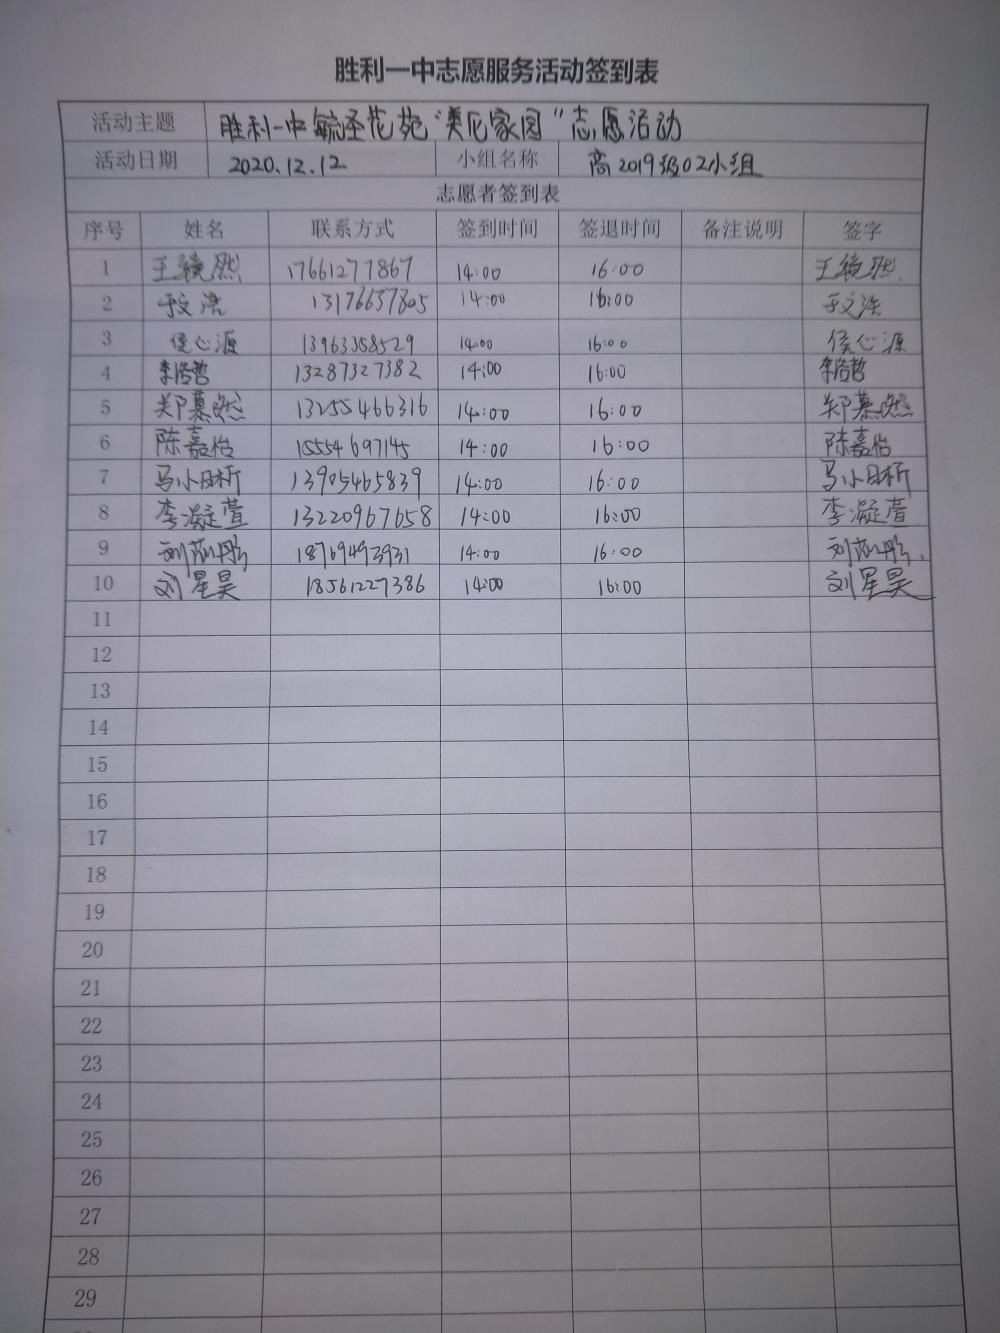 胜利一中志愿服务活动签到表
活动主题 胜利一中毓圣花苑“美尼家园”志愿活动
活动日期 2020.12.12 小组名称 高2019级02小组
志愿者签到表
序号 姓名 联系方式 签到时间 签退时间 备注说明 签字
1 王镜然 17661277867 14:00 16:00 王镜然
2 于文浩 13176637805 14:00 16:00 于文浩
3 侯心源 13963358529 14:00 16:00 侯心源
4 李浩哲 13287327382 14:00 16:00 李浩哲
5 郑慕然 13255466316 14:00 16:00 郑慕然
6 陈嘉怡 15554697145 14:00 16:00 陈嘉怡
7 马小晰 13905465839 14:00 16:00 马小晰
8 李凝萱 13220967658 14:00 16:00 李凝萱
9 刘 18769493931 14:00 16:00 刘
10 刘星昊 18561227386 14:00 16:00 刘星昊
11
12
13
14
15
16
17
18
19
20
21
22
23
24
25
26
27
28
29